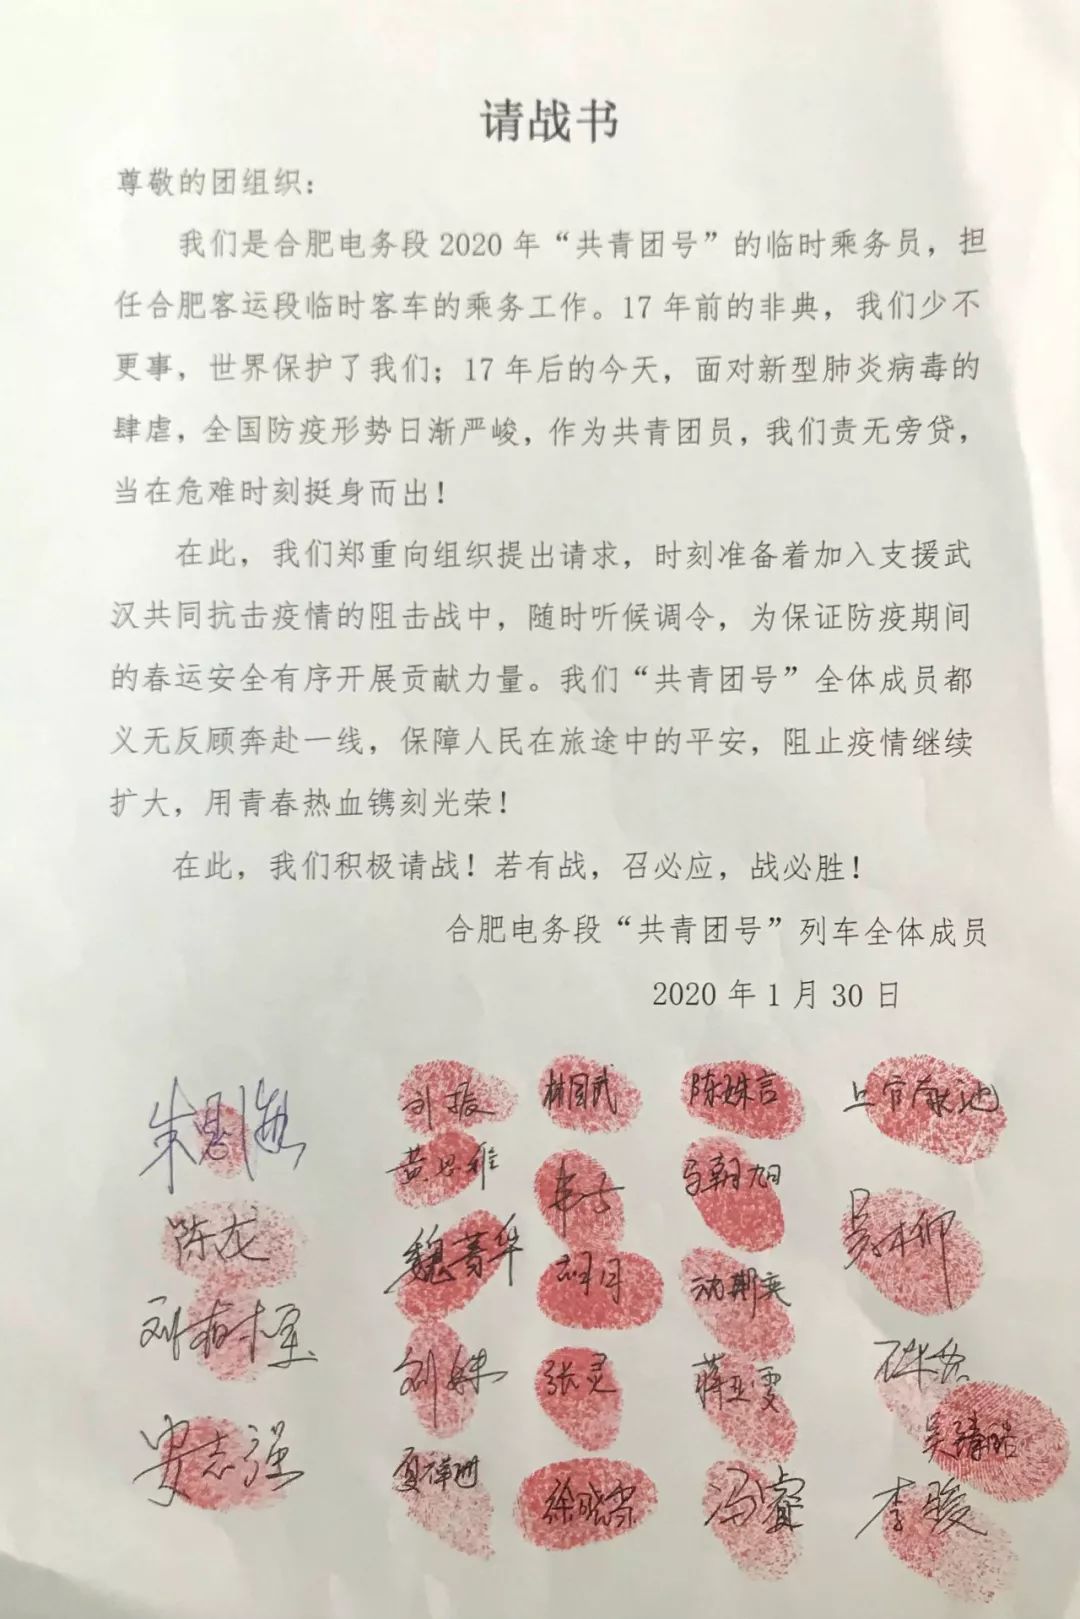 请战书
尊敬的团组织：
我们是合肥电务段 2020 年“共青团号”的临时乘务员，担
任合肥客运段临时客车的乘务工作。17 年前的非典，我们少不
更事，世界保护了我们；17 年后的今天，面对新型肺炎病毒的
肆虐，全国防疫形势日渐严峻，作为共青团员，我们责无旁贷，
当在危难时刻挺身而出！
在此，我们郑重向组织提出请求，时刻准备着加入支援武
汉共同抗击疫情的阻击战中，随时听候调令，为保证防疫期间
的春运安全有序开展贡献力量。我们“共青团号”全体成员都
义无反顾奔赴一线，保障人民在旅途中的平安，阻止疫情继续
扩大，用青春热血镌刻光荣！
在此，我们积极请战！若有战，召必应，战必胜！
合肥电务段“共青团号”列车全体成员
2020 年 1 月 30 日
刘振
陈珠言
黄思维
马朝旭
陈龙
魏菁华
吴柳
胡月
刘姝
张灵
蒋亚雯
安志强
冯睿
李骏